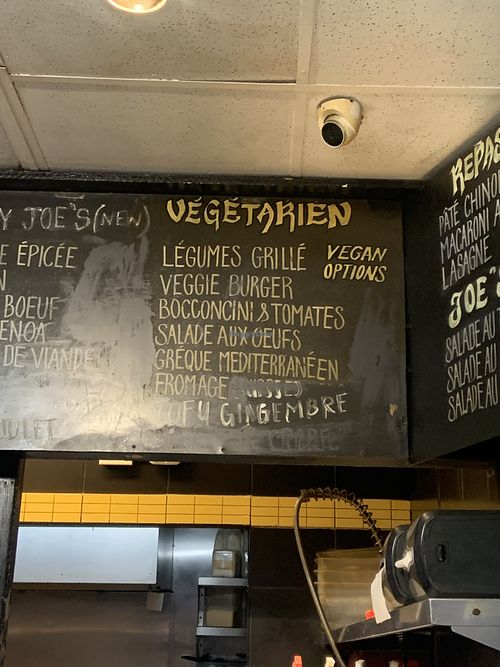 Y JOE'S (NEW)
E ÉPICÉE
N
BOEUF
ENOA
DE VIANDE
OULET
VÉGÉTARIEN
LÉGUMES GRILLÉ
VEGGIE BURGER
BOCCONCINI & TOMATES
SALADE AUX OEUFS
GRÉQUE MEDITERRANÉEN
FROMAGE
TOFU GINGEMBRE
VEGAN
OPTIONS
REPAS
PÂTÉ CHINOI
MACARONI A
LASAGNE
JOE'S
SALADE AU T
SALADE AU
SALADE AU